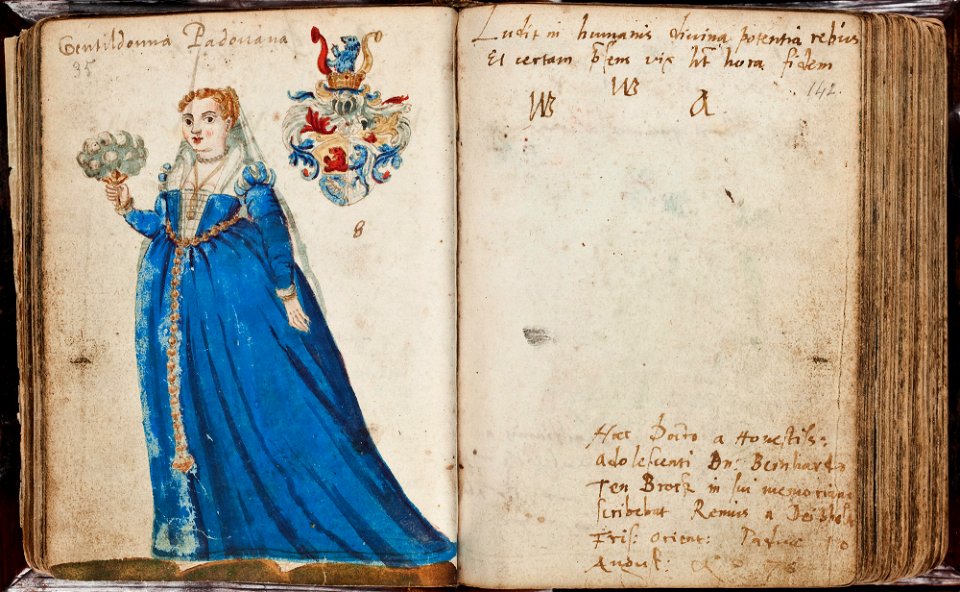 Gentildonna Padouana
35
8
Ludit in humanis divina potentia rebus
Et certam p̃sens vix h̃t hora fidem
142.
W W A
Hæc Docto a Honestiss:
Adolescenti Dn: Bernhardo
Ten Brock in sui memoriam
scribebat Remus a
Fris: orient:
August: